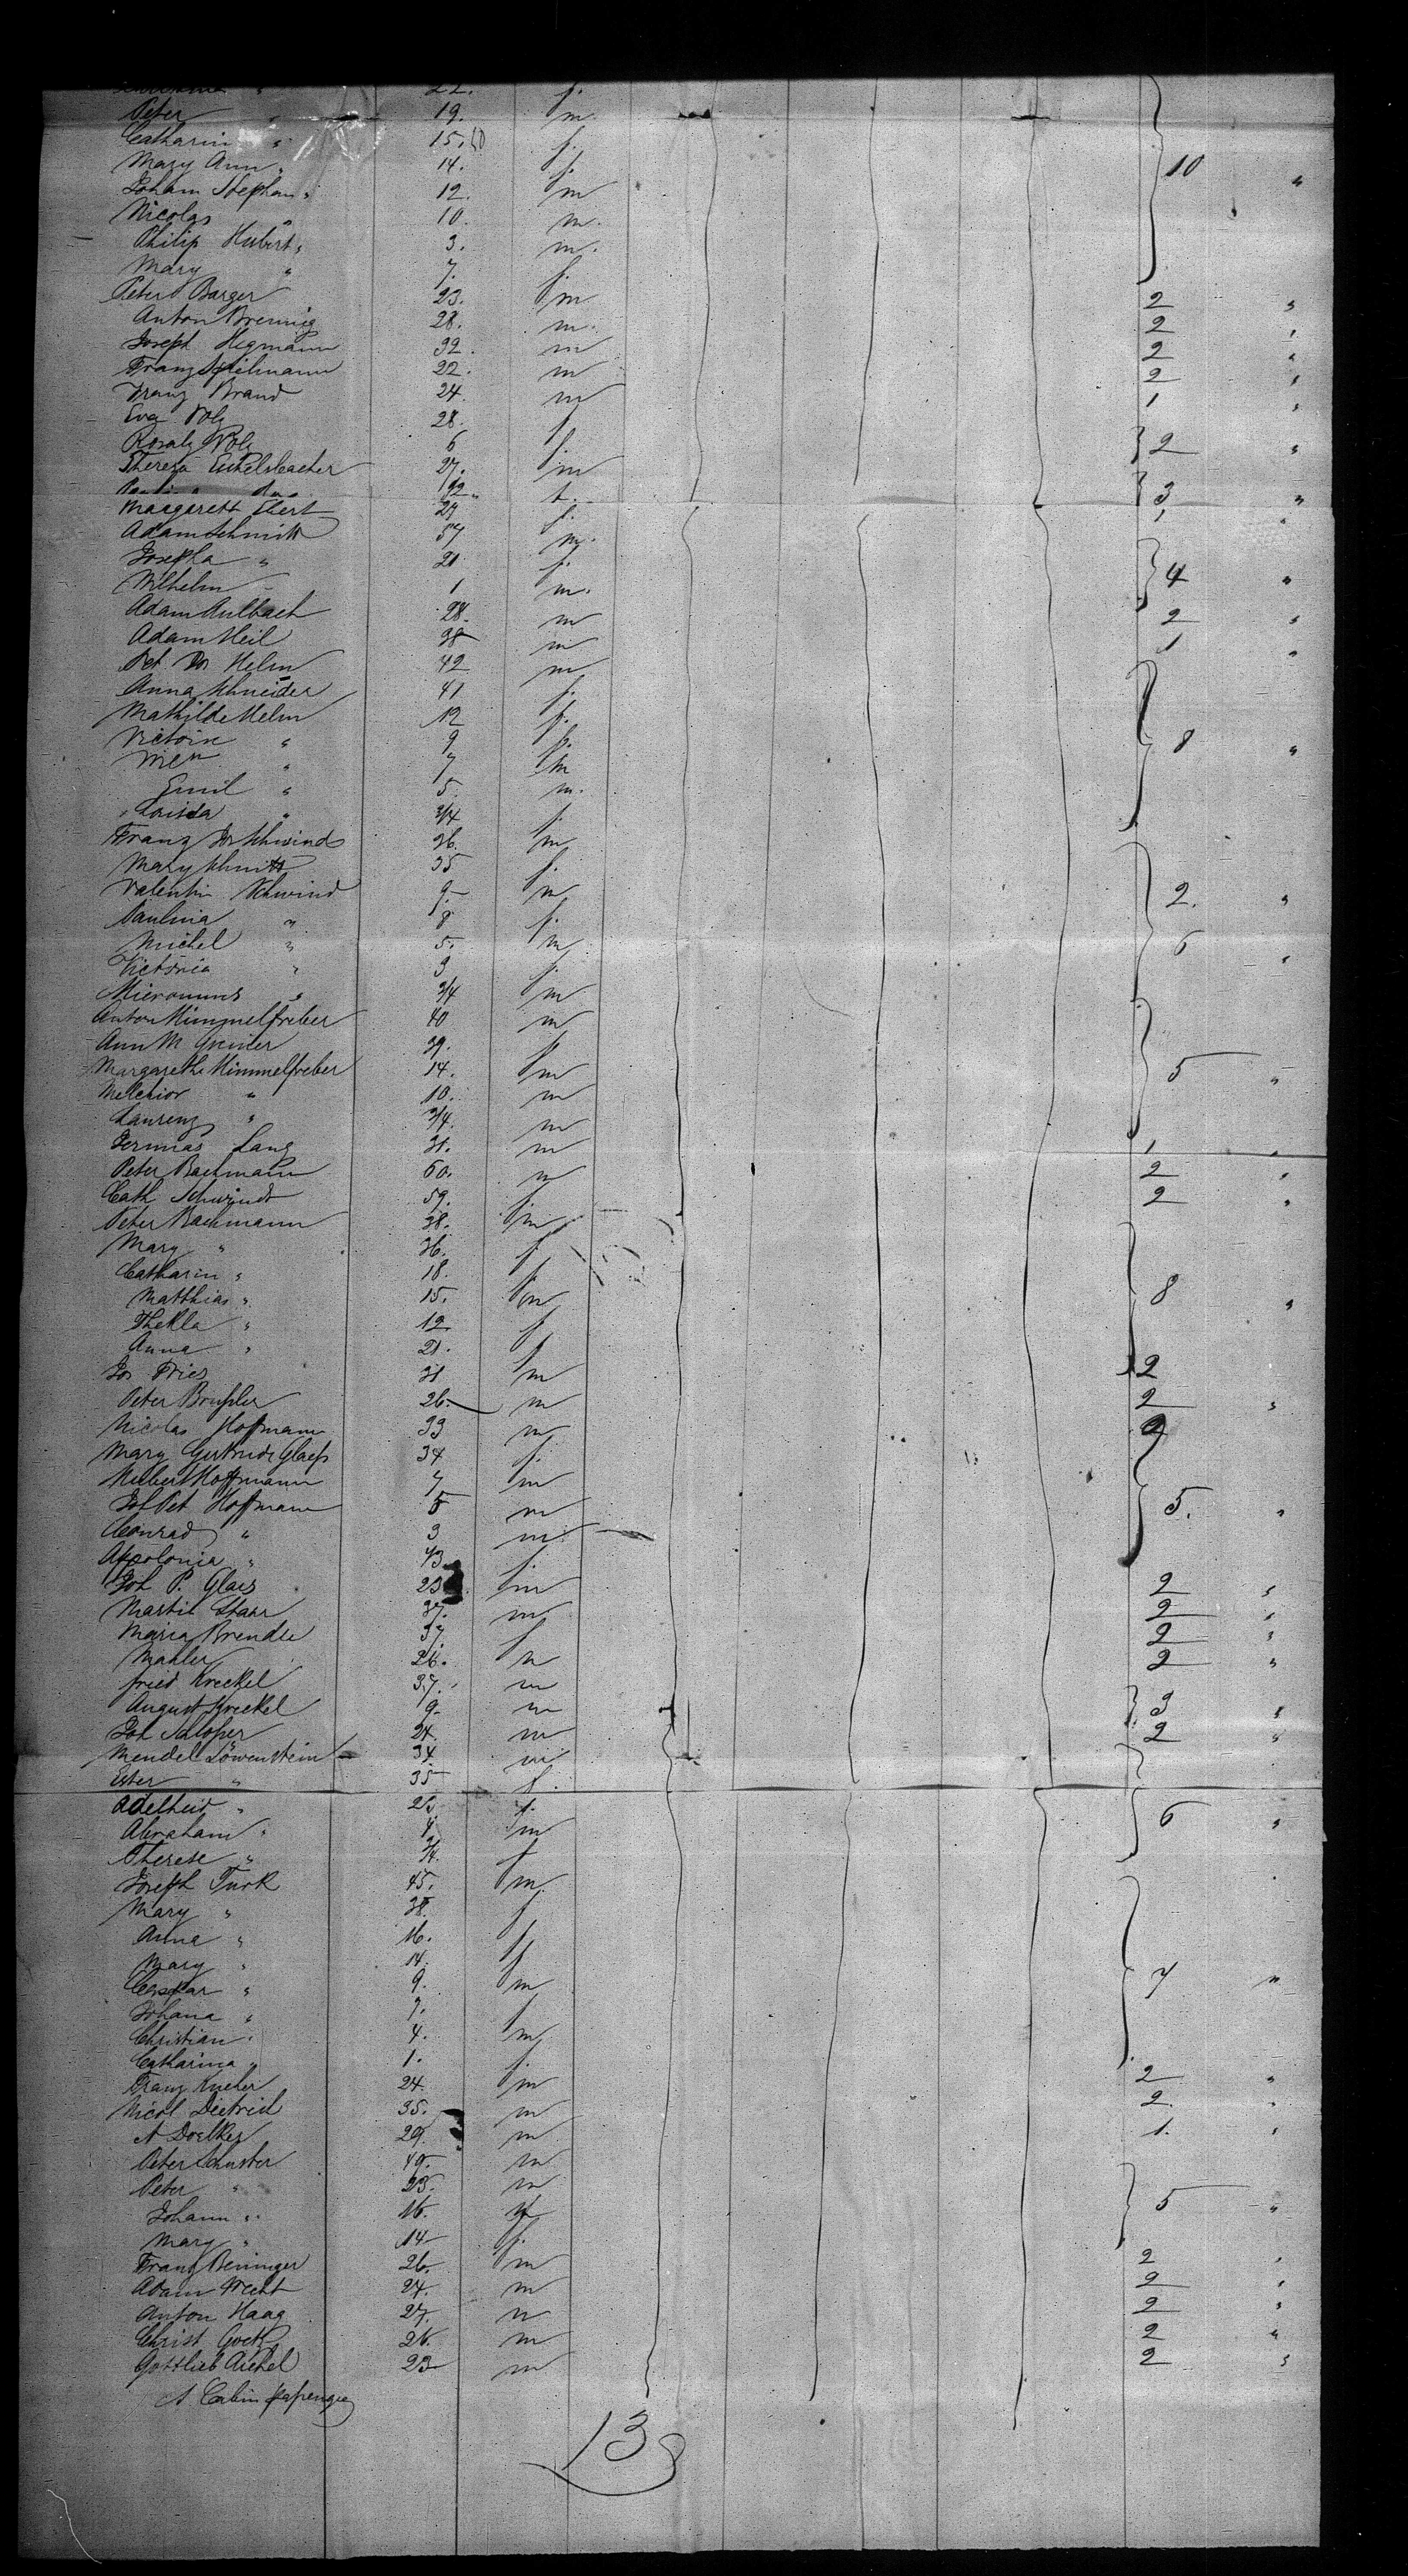 22. f.
Peter " 19. m.
Catharin " 15. f.
Mary Ann " 14. f. 10 "
Joham Stephan " 12. m
Nicolas " 10. m.
Philip Hubert " 3. m.
Mary " 7. f.
Peter Barger 23. m 2 "
Anton Brennig 28. m. 2 "
Joseph Hegmann 32. m 2 "
Franz Spilmann 22. m 2 "
Franz Brand 24. m 1 "
Eva Volz 28. f
Rosaly Volz 6 f. 2 "
Theresa Eichelsbacher 27. m
3 "
Maagarett Ebert 27 f. 1 "
Adam Schmitt 57 m.
Josepha " 21 f. 4 "
Wilhelm " 1 m.
Adam Aulbach 28. m 2 "
Adam Heil 38 m 1 "
Pet Jos Helm 42 m
Anna Schneider 41 f.
Mathilde Helm 12 f.
Victorin " 9 f. 8 "
" 7 m
Emil " 5. m.
Louisda " 3/4 f.
Franz Jos Schwind 36. m
Mary Schmitt 35 f.
Valentin Schwind 9. m 2. "
Paulina " 8 f.
Michel " 5. m 6 "
Victoria " 3 f.
Hieronims " 3/4 m
Anton Himmelfreber 40 m
Ann M Greiner 39. f
Margaretha Himmelfreber 14. m 5 "
Melchior " 10. m
Laurenz " 3/4. m
Jermias Lang 31. m 1 "
Peter Bachmann 60. m 2 "
Cath Schwindt 59. f 2 "
Peter Bachmann 38. m
Mary " 36. f
Catharin " 18. f
Matthias " 15. m 8 "
Thekla " 12. f
Anna " 21. f
Jos Fries 31 m 2
Peter 26. m 2 "
Nicolas Hoffmann 33 m 2
Mary Gertrude Glaess 34 f.
Hubert Hoffmann 7 m
Joh Pet Hoffmann 5 m 5. "
Conrad " 3 m
Appolonia " f.
Joh P. Glaes 23 m 2 "
Martin Staar 37. m 2 "
Maria Brendle 37 f 2 "
Mahler 26. m 2 "
fried Kreckel 37. m
August Kreckel 9. m 3 "
Joh Schloper 24. m 2 "
Mendel Löwenstein 34 m
Ester " 35 f.
Adelheid " f.
Abraham " m 6 "
Therese " 3/4 f
Joseph Turk 45. m
Mary " 38. f
Anna " 16. f
Mary " 14. f
Caspar " 9. m 7 "
Johana " 7. f
Christian " 4. m
Catharina " 1. f.
Franz Kucher 24. m 2 "
Nicol Dietrich 35. m 2 "
A Doelker 29. m 1. "
Peter Schuster 49. m
Peter " 23. m
Johann " 16. 5 "
Mary " 14 f.
Franz Beninger 26. m 2 "
Adam Wecht 24. m 2 "
Anton Haag 27. m 2 "
Christ Goetz 26. m 2 "
Gottlieb Aichel 23 m 2 "
A. Cabin passenger
13